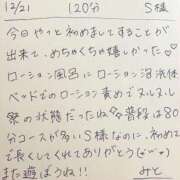 12/21 120分 S様
今日やっと初めましてすることが
出来て、めちゃくちゃ嬉しかった♡
ローション風呂にローション浴、泡体
ベッドでのローション責めでヌルヌル
祭の状態だったね☆普段は80
分コースが多いS様なのに、初めて
で長くしてくれてありがとう(˘ω˘)
また遊ぼうね!! みと